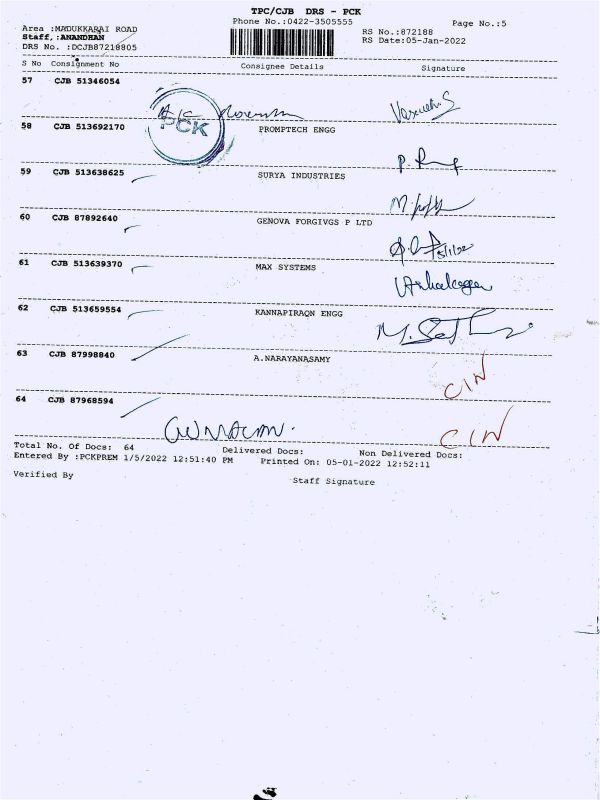 TPC/CJB DRS - PCK
Phone No.:0422-3505555
Page No.:5
Area :MADUKKARAI ROAD
Staff,:ANANDHAN
RS No.:872188
DRS No. :DCJB87218805
RS Date:05-Jan-2022
S No Consignment No Consignee Details Signature
57 CJB 51346054
PCK
58 CJB 513692170 PROMPTECH ENGG
59 CJB 513638625 SURYA INDUSTRIES
60 CJB 87892640 GENOVA FORGIVGS P LTD
5/1/22
61 CJB 513639370 MAX SYSTEMS
62 CJB 513659554 KANNAPIRAQN ENGG
63 CJB 87998840 A.NARAYANASAMY
CIN
64 CJB 87968594
CIN
Total No. Of Docs: 64 Delivered Docs: Non Delivered Docs:
Entered By :PCKPREM 1/5/2022 12:51:40 PM Printed On: 05-01-2022 12:52:11
Verified By Staff Signature